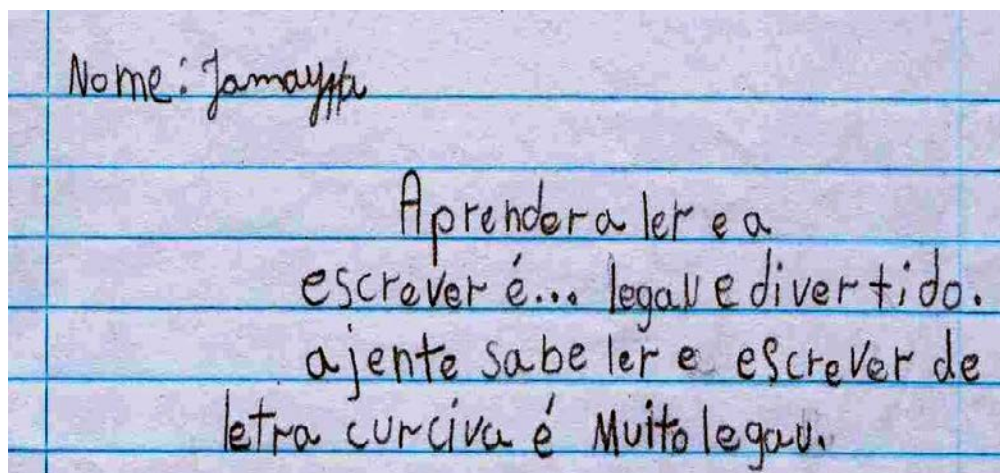 Nome: Jamaylla
Aprender a ler e a
escrever é... legau e divertido.
ajente sabe ler e escrever de
letra curciva é Muito legau.